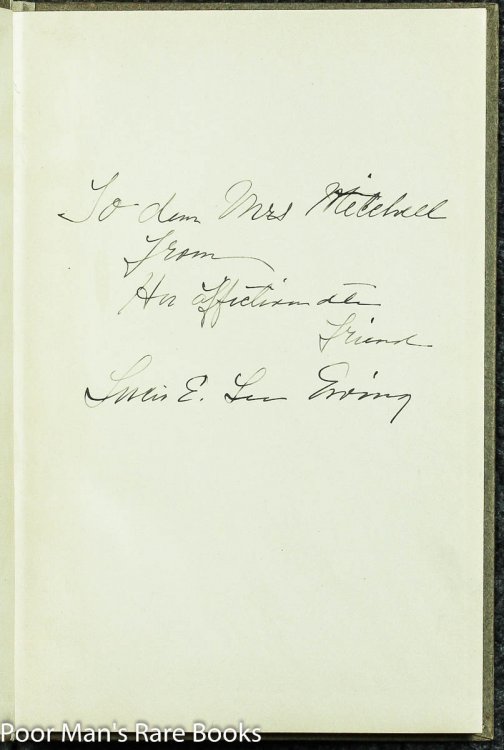 To dear Mrs Mitchell
From
Her affectionate
friend
Lucie E. Lee Ewing
Poor Man's Rare Books